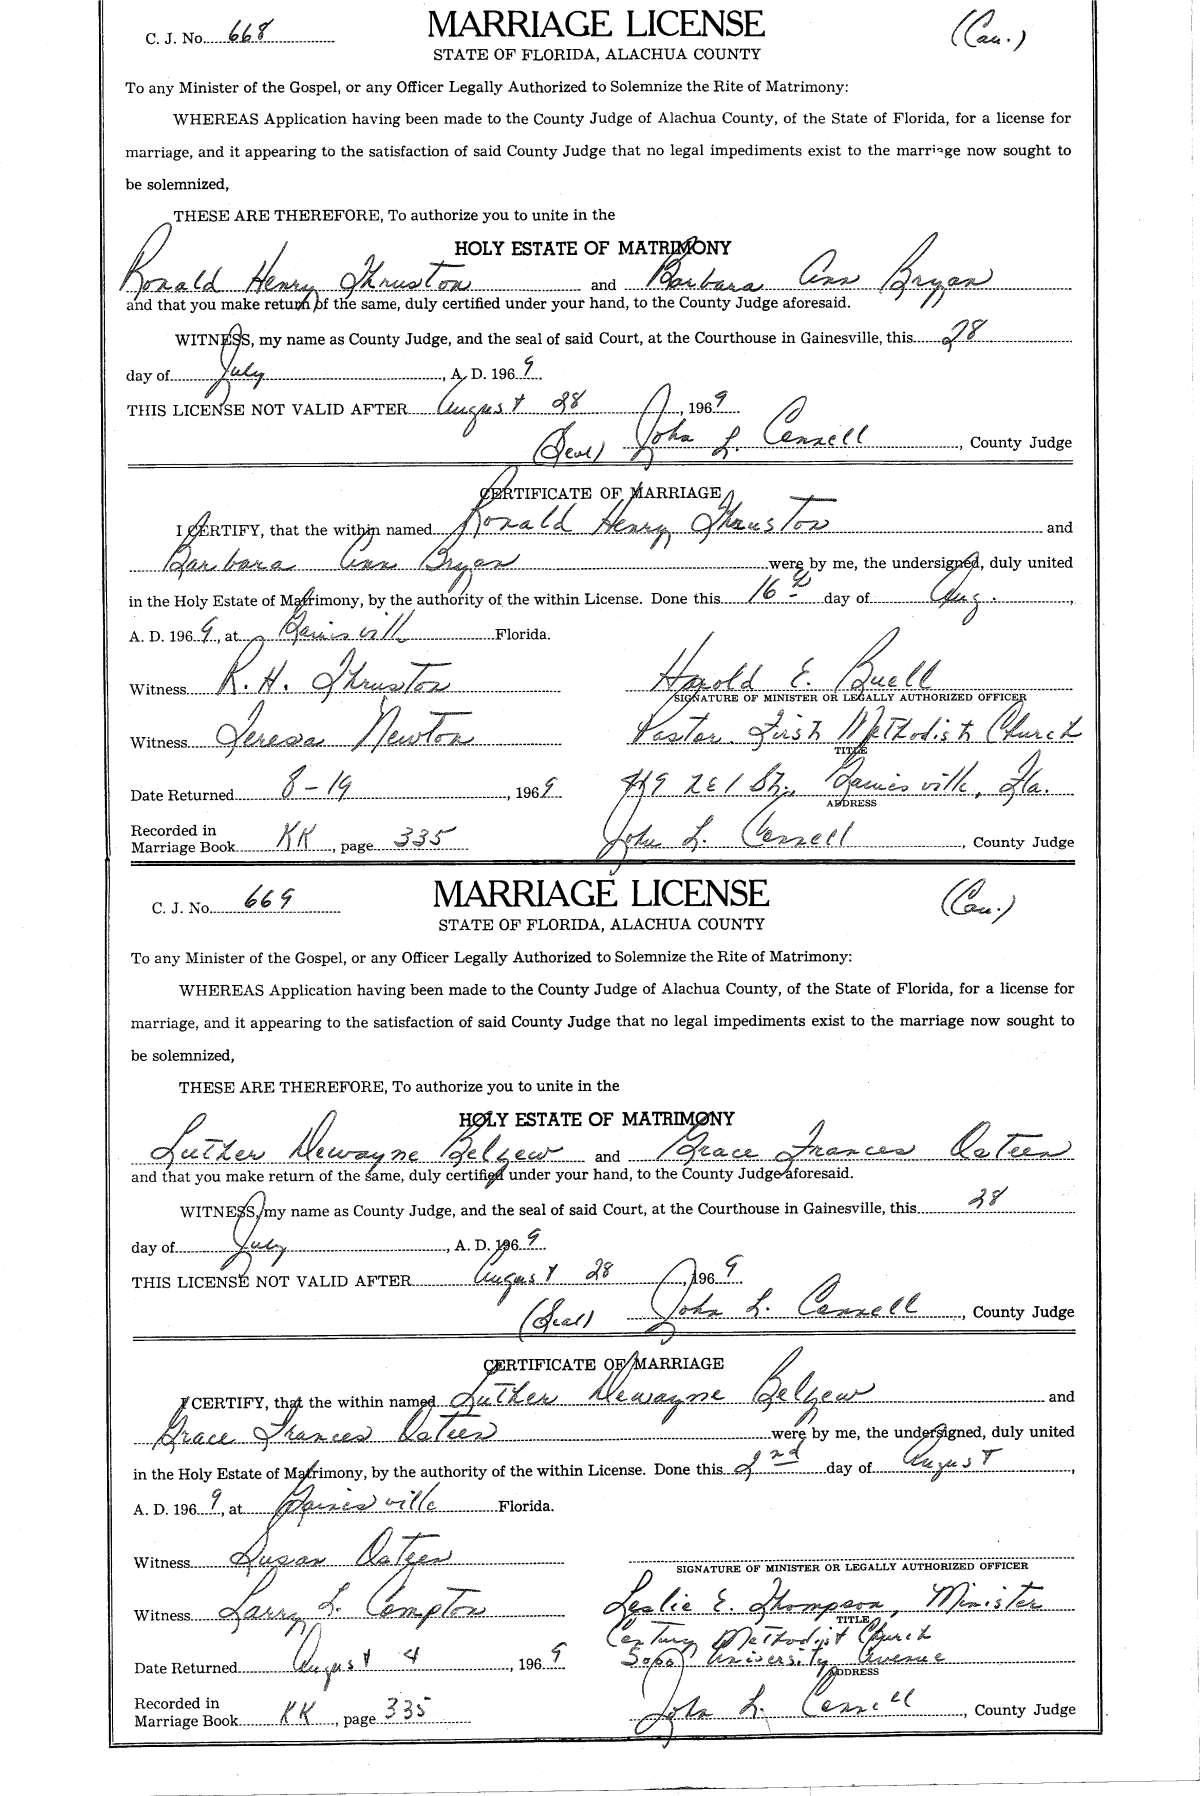 C. J. No. 668 MARRIAGE LICENSE (Cau.)
STATE OF FLORIDA, ALACHUA COUNTY
To any Minister of the Gospel, or any Officer Legally Authorized to Solemnize the Rite of Matrimony:
WHEREAS Application having been made to the County Judge of Alachua County, of the State of Florida, for a license for
marriage, and it appearing to the satisfaction of said County Judge that no legal impediments exist to the marriage now sought to
be solemnized,
THESE ARE THEREFORE, To authorize you to unite in the
HOLY ESTATE OF MATRIMONY
Ronald Henry Thruston and Barbara Ann Bryan
and that you make return of the same, duly certified under your hand, to the County Judge aforesaid.
WITNESS, my name as County Judge, and the seal of said Court, at the Courthouse in Gainesville, this 28
day of July, A. D. 1969
THIS LICENSE NOT VALID AFTER August 28, 1969
(Seal) John L. Connell, County Judge
CERTIFICATE OF MARRIAGE
I CERTIFY, that the within named Ronald Henry Thruston and
Barbara Ann Bryan were by me, the undersigned, duly united
in the Holy Estate of Matrimony, by the authority of the within License. Done this 16 day of Aug.,
A. D. 1969, at Gainesville Florida.
Witness R. H. Thruston Harold E. Buell
SIGNATURE OF MINISTER OR LEGALLY AUTHORIZED OFFICER
Witness Teresa Newton Pastor First Methodist Church
TITLE
Date Returned 8-19, 1969 419 N E 1 St., Gainesville, Fla.
ADDRESS
Recorded in
Marriage Book KK, page 335 John L. Connell, County Judge
C. J. No. 669 MARRIAGE LICENSE (Cau.)
STATE OF FLORIDA, ALACHUA COUNTY
To any Minister of the Gospel, or any Officer Legally Authorized to Solemnize the Rite of Matrimony:
WHEREAS Application having been made to the County Judge of Alachua County, of the State of Florida, for a license for
marriage, and it appearing to the satisfaction of said County Judge that no legal impediments exist to the marriage now sought to
be solemnized,
THESE ARE THEREFORE, To authorize you to unite in the
HOLY ESTATE OF MATRIMONY
Luther Dewayne Belyew and Grace Frances Osteen
and that you make return of the same, duly certified under your hand, to the County Judge aforesaid.
WITNESS, my name as County Judge, and the seal of said Court, at the Courthouse in Gainesville, this 28
day of July, A. D. 1969
THIS LICENSE NOT VALID AFTER August 28, 1969
(Seal) John L. Connell, County Judge
CERTIFICATE OF MARRIAGE
I CERTIFY, that the within named Luther Dewayne Belyew and
Grace Frances Osteen were by me, the undersigned, duly united
in the Holy Estate of Matrimony, by the authority of the within License. Done this 2nd day of August,
A. D. 1969, at Gainesville Florida.
Witness Susan Osteen
SIGNATURE OF MINISTER OR LEGALLY AUTHORIZED OFFICER
Witness Larry L. Compton Leslie E. Thompson, Minister
TITLE
Century Methodist Church
Date Returned August 4, 1969 University Avenue
ADDRESS
Recorded in
Marriage Book KK, page 335 John L. Connell, County Judge